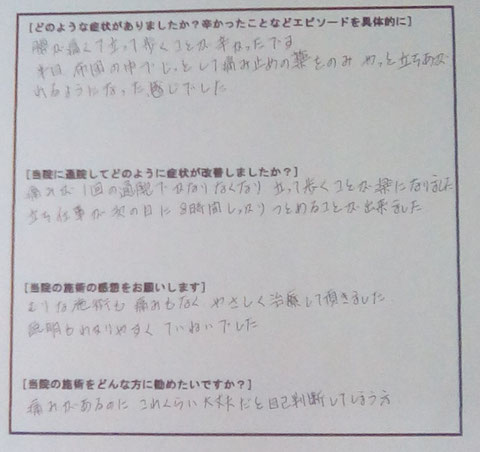 [どのような症状がありましたか？辛かったことなどエピソードを具体的に]
腰が痛くて立って歩くことが辛かったです
半日、布団の中でじっとして痛み止めの薬をのみ やっと立ちあが
れるようになった感じでした
[当院に通院してどのように症状が改善しましたか？]
痛みが1回の通院でかなりなくなり 立って歩くことが楽になりました
立ち仕事が次の日に8時間しっかりつとめることが出来ました
[当院の施術の感想をお願いします]
むりな施術も 痛みもなく やさしく治療して頂きました。
説明もわかりやすく ていねいでした
[当院の施術をどんな方に勧めたいですか？]
痛みがあるのに これくらい大丈夫だと自己判断してしまう方